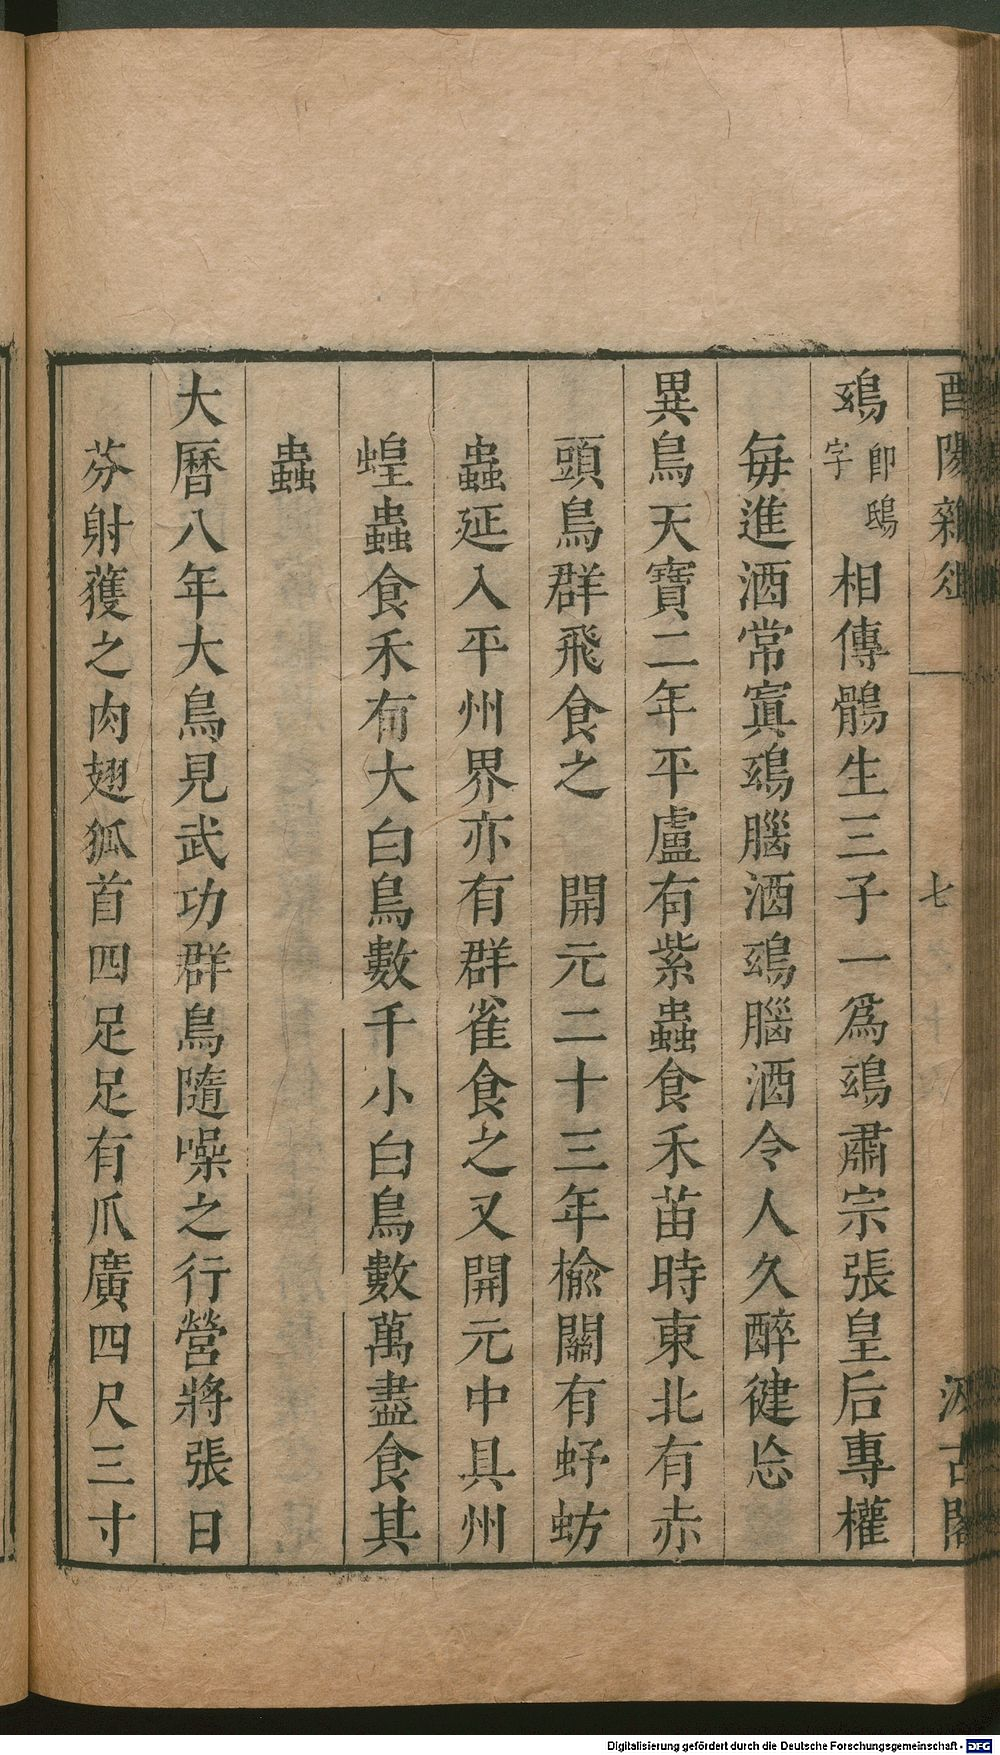 酉陽雜俎 七 汲古閣
鵶即鴟字相傳鶻生三子一爲鵶肅宗張皇后專權
每進酒常寘鵶腦酒鵶腦酒令人久醉健忘
異鳥天寶二年平盧有紫蟲食禾苗時東北有赤
頭鳥群飛食之 開元二十三年榆關有虸蚄
蟲延入平州界亦有群雀食之又開元中具州
蝗蟲食禾有大白鳥數千小白鳥數萬盡食其
蟲
大曆八年大鳥見武功群鳥隨噪之行營將張日
芬射獲之肉翅狐首四足足有爪廣四尺三寸
Digitalisierung gefördert durch die Deutsche Forschungsgemeinschaft - DFG